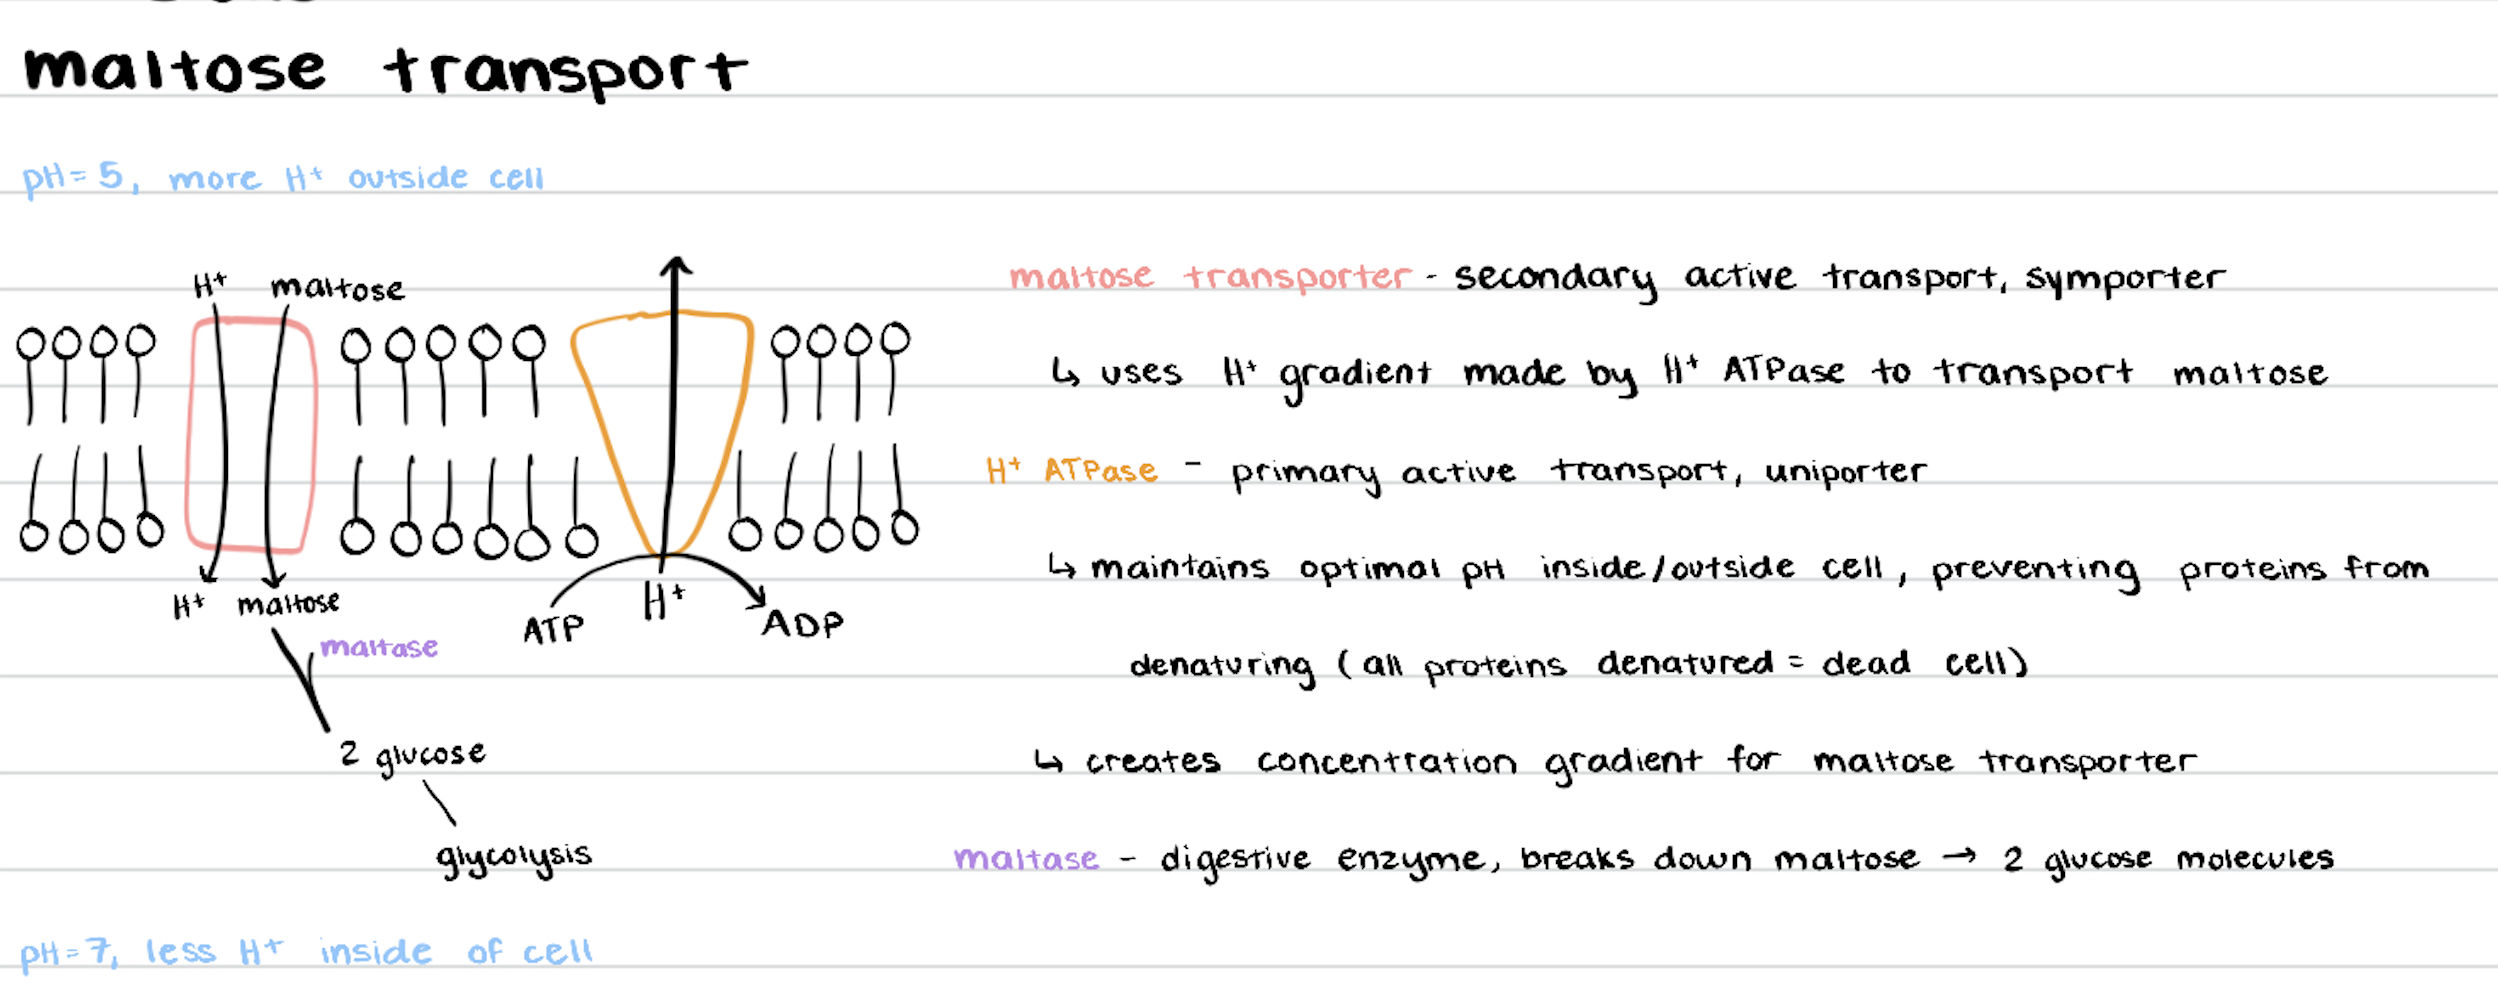 maltose transport
pH=5, more H⁺ outside cell
H⁺ maltose
H⁺ maltose
maltase
2 glucose
glycolysis
ATP H⁺ ADP
pH=7, less H⁺ inside of cell
maltose transporter - secondary active transport, symporter
↳ uses H⁺ gradient made by H⁺ ATPase to transport maltose
H⁺ ATPase - primary active transport, uniporter
↳ maintains optimal pH inside/outside cell, preventing proteins from
denaturing (all proteins denatured = dead cell)
↳ creates concentration gradient for maltose transporter
maltase - digestive enzyme, breaks down maltose → 2 glucose molecules